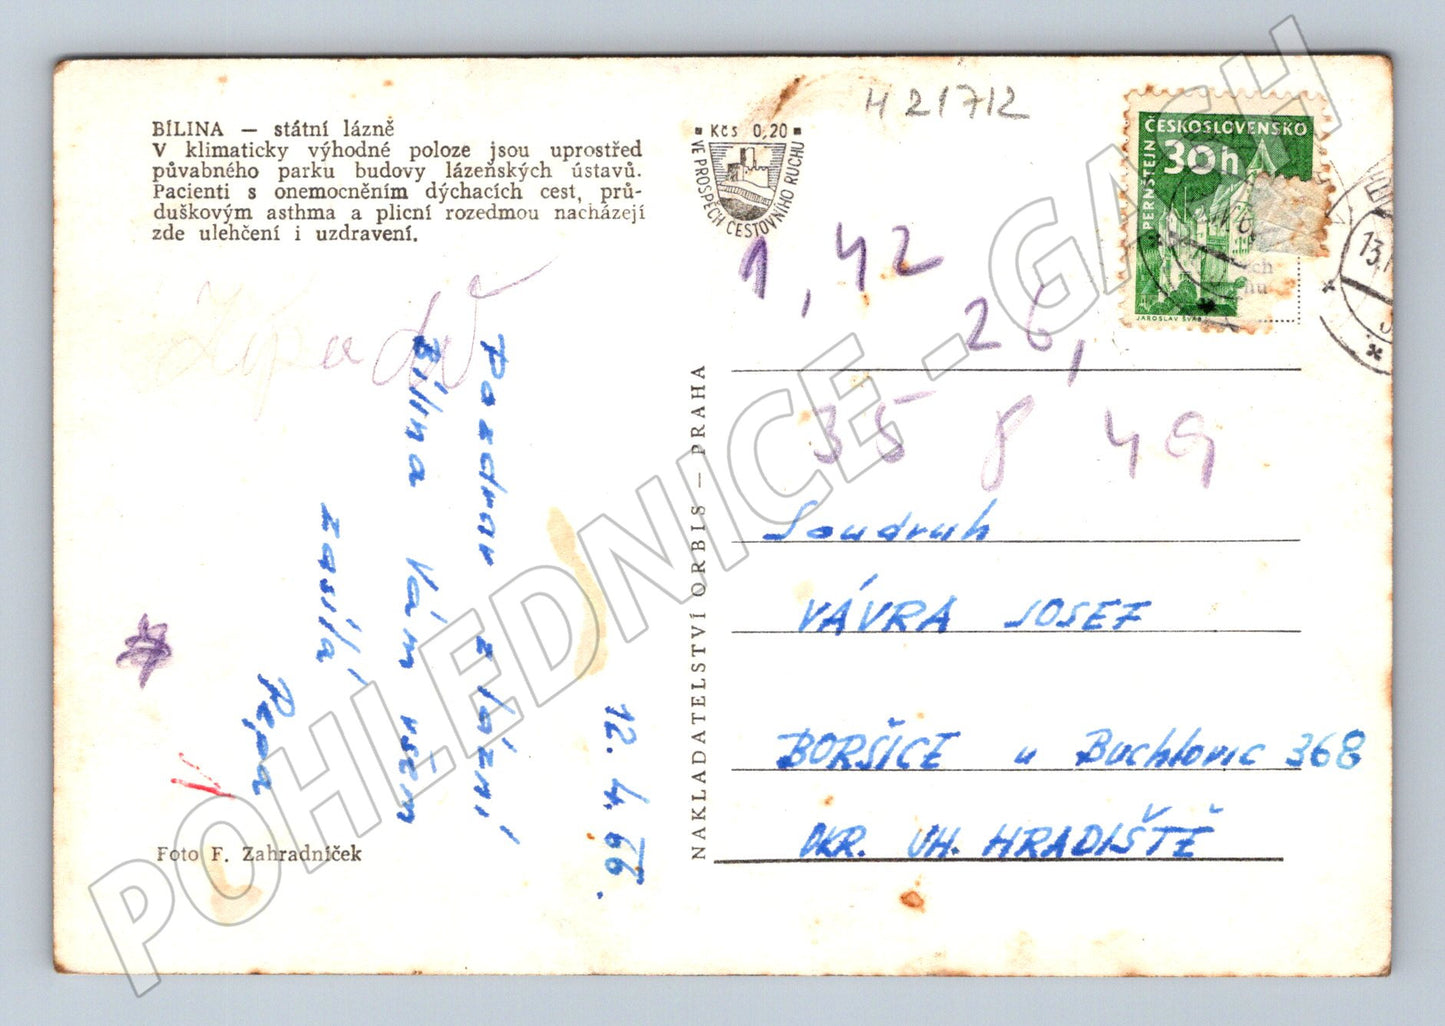 BÍLINA — státní lázně
V klimaticky výhodné poloze jsou uprostřed
půvabného parku budovy lázeňských ústavů.
Pacienti s onemocněním dýchacích cest, prů-
duškovým asthma a plicní rozedmou nacházejí
zde ulehčení i uzdravení.
Pozdrav z lázní
Bílina Vám všem
zasílá
Pepa
12. 4. 66.
Foto F. Zahradníček
NAKLADATELSTVÍ ORBIS — PRAHA
Kčs 0,20
VE PROSPĚCH CESTOVNÍHO RUCHU
H 21712
ČESKOSLOVENSKO
30h
PERNŠTEJN
JAROSLAV ŠVAB
13.
1,42
26,
35 8 49
Soudruh
VÁVRA JOSEF
BORŠICE u Buchlovic 368
OKR. UH. HRADIŠTĚ
POHLEDNICE - GASH